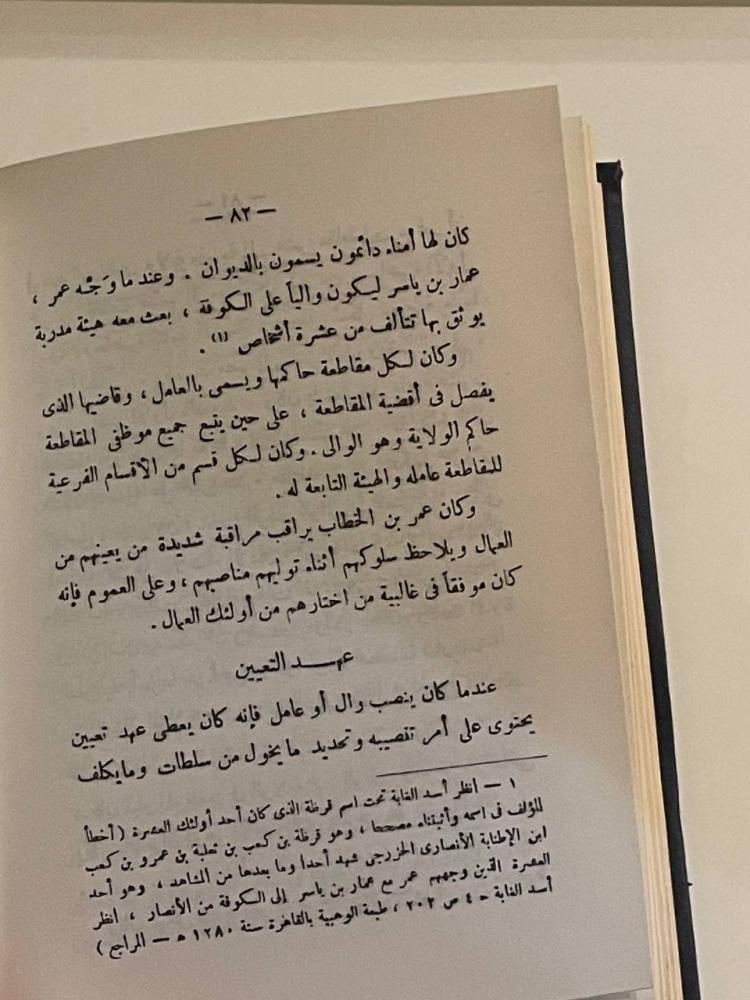 — ٨٢ —
كان لها أمناء دائمون يسمون بالديوان . وعند ما وَجَّه عمر ،
عمار بن ياسر ليكون والياً على الكوفة ، بعث معه هيئة مدربة
يوثق بها تتألف من عشرة أشخاص (١) .
وكان لكل مقاطعة حاكمها ويسمى بالعامل ، وقاضيها الذى
يفصل فى أقضية المقاطعة ، على حين يتبع جميع موظفى المقاطعة
حاكم الولاية وهو الوالى . وكان لكل قسم من الأقسام الفرعية
للمقاطعة عامله والهيئة التابعة له .
وكان عمر بن الخطاب يراقب مراقبة شديدة من يعينهم من
العمال ويلاحظ سلوكهم أثناء توليهم مناصبهم ، وعلى العموم فإنه
كان موفقاً فى غالبية من اختارهم من أولئك العمال .
عهـــد التعيين
عندما كان ينصب وال أو عامل فإنه كان يعطى عهد تعيين
يحتوى على أمر تنصيبه وتحديد ما يخول من سلطات وما يكلف
١ — أنظر أسد الغابة تحت اسم قرظة الذى كان أحد أولئك العشرة ( أخطأ
المؤلف فى اسمه وأثبتناه مصححا ، وهو قرظة بن كعب بن ثعلبة بن عمرو بن كعب
ابن الإطنابة الأنصارى الخزرجى شهد أحداً وما بعدها من المشاهد ، وهو أحد
العشرة الذين وجههم عمر مع عمار بن ياسر إلى الكوفة من الأنصار ، انظر
أسد الغابة ج ٤ ص ٢٠٢ ، طبعة الوهبية بالقاهرة سنة ١٢٨٠ ه — المراجع )